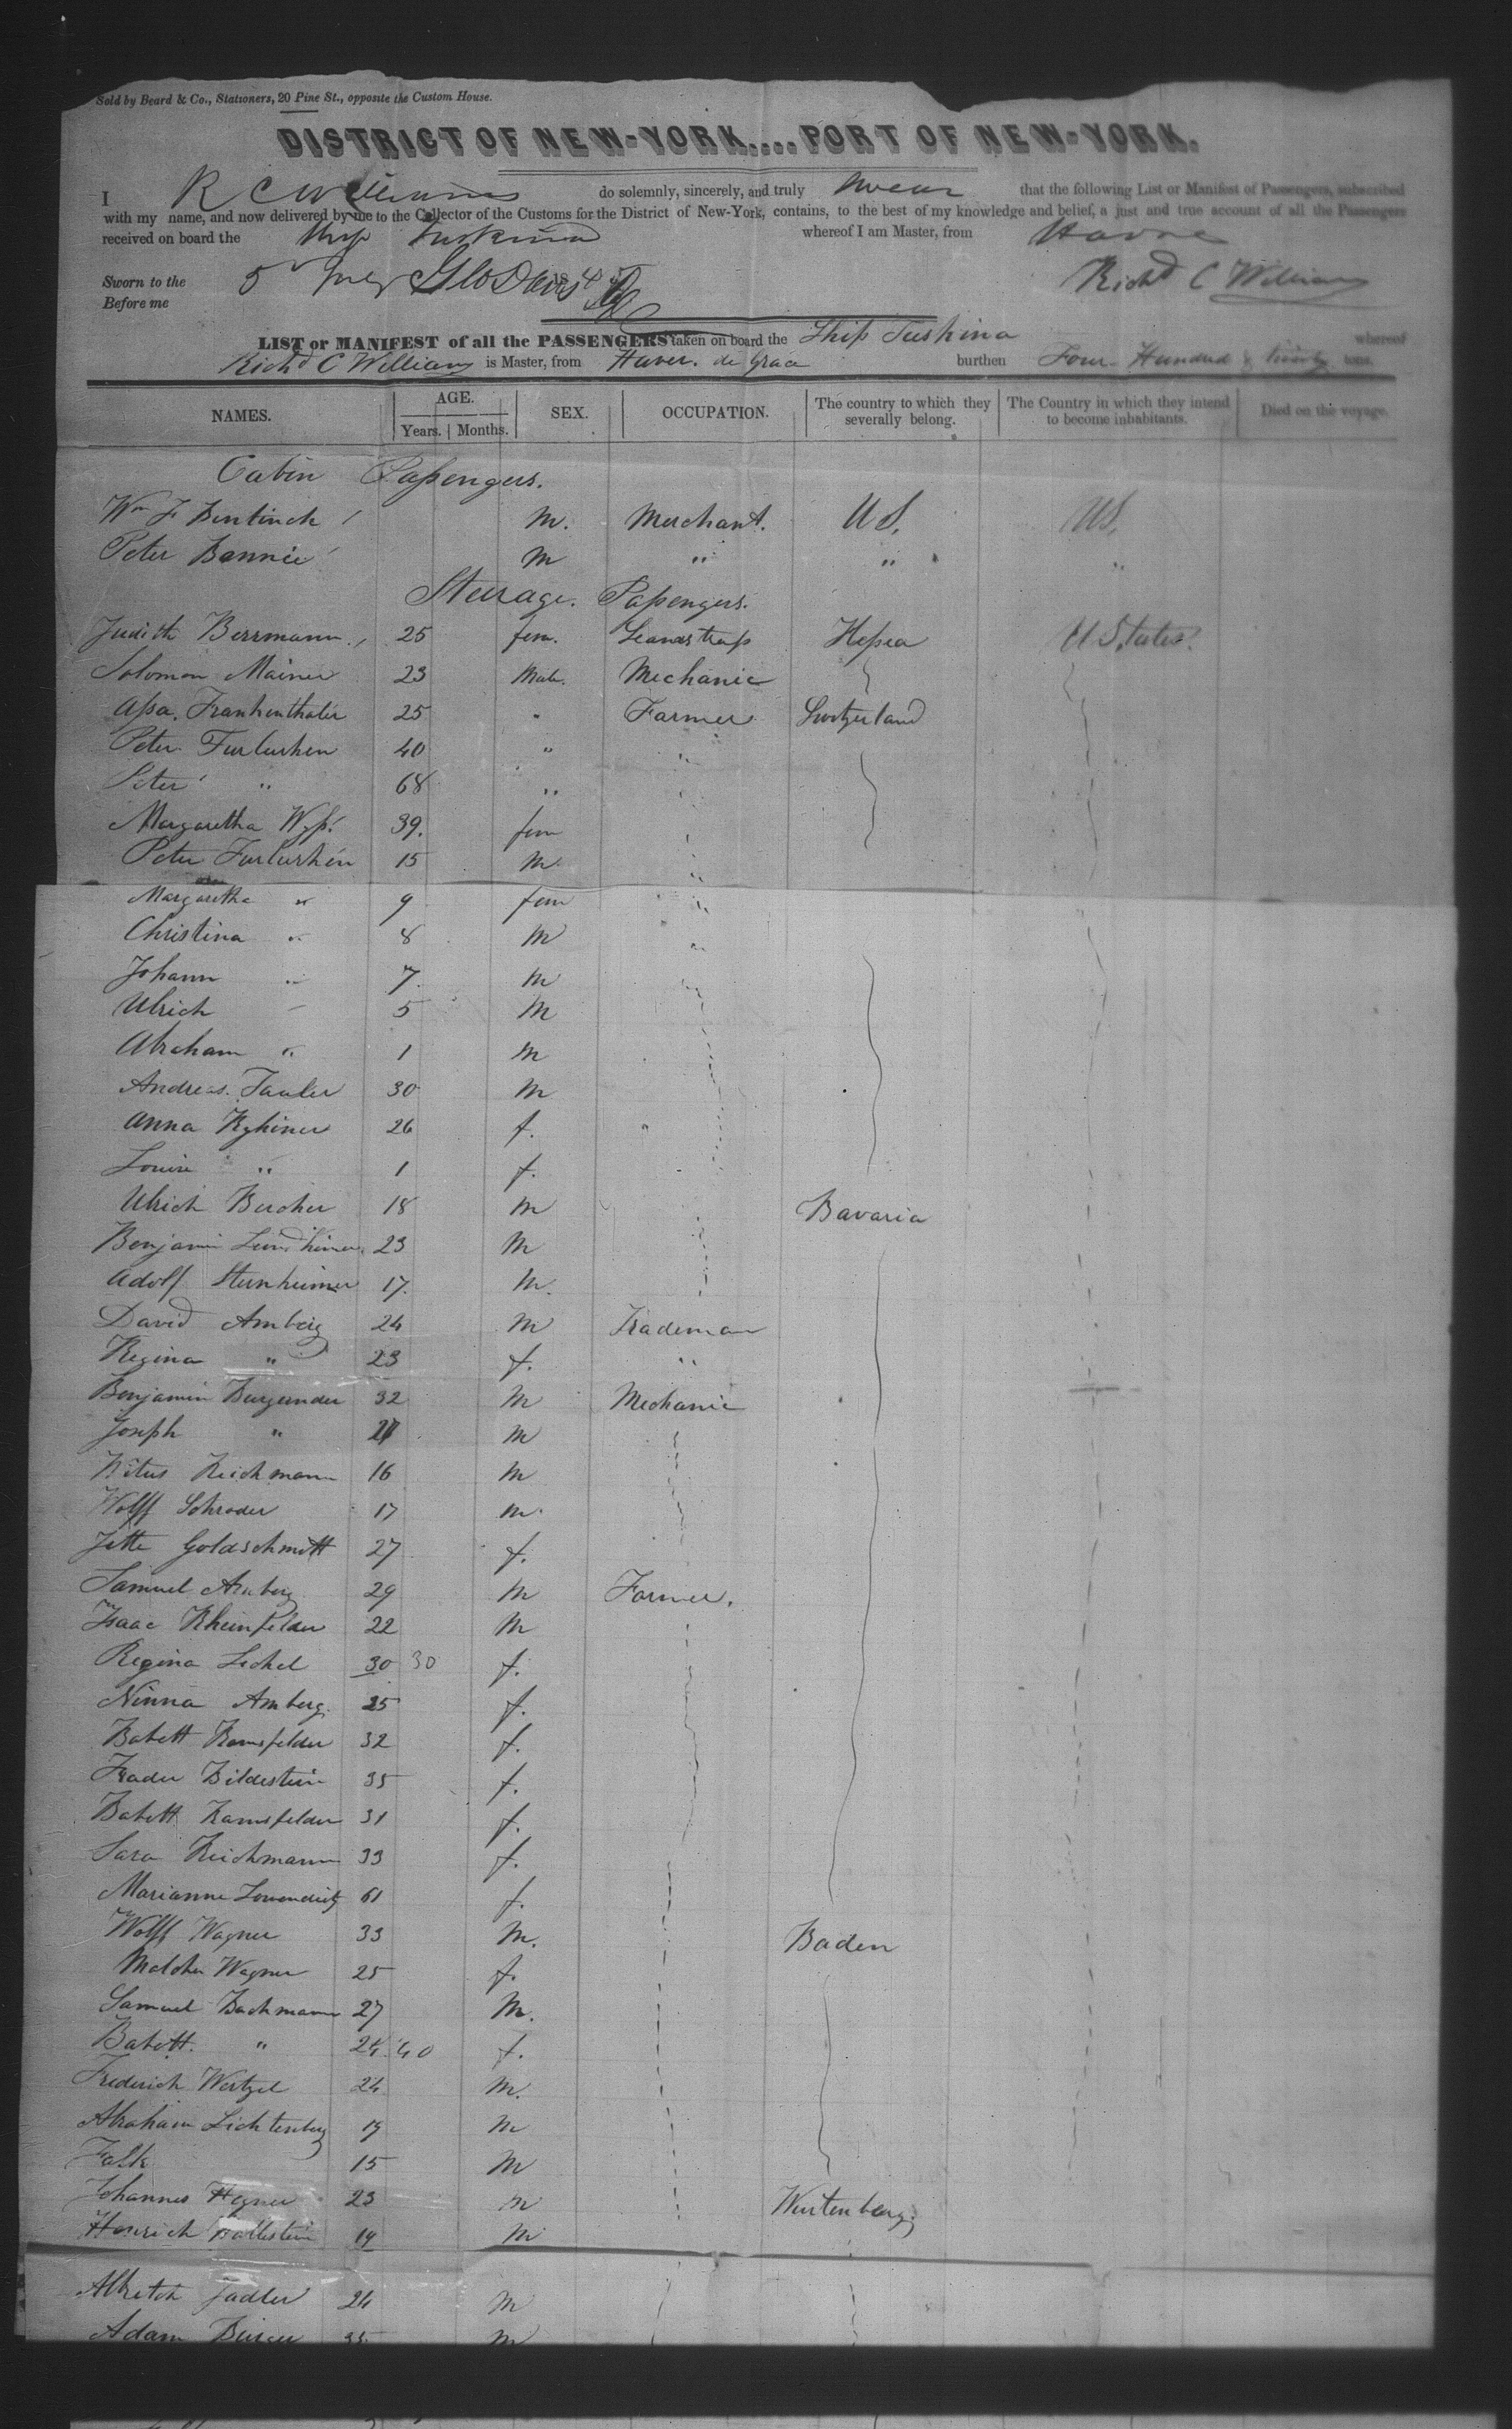 Sold by Beard & Co., Stationers, 20 Pine St., opposite the Custom House.
DISTRICT OF NEW-YORK....PORT OF NEW-YORK.
I R C Williams do solemnly, sincerely, and truly swear that the following List or Manifest of Passengers, subscribed
with my name, and now delivered by me to the Collector of the Customs for the District of New-York, contains, to the best of my knowledge and belief, a just and true account of all the Passengers
received on board the Ship Tuskina whereof I am Master, from Havre
Sworn to the 5 July Richd C Williams
Before me Geo Davis
LIST or MANIFEST of all the PASSENGERS taken on board the Ship Tuskina whereof
Richd C Williams is Master, from Haver. de Grace burthen Four Hundred & tons.
NAMES. AGE. Years. Months. SEX. OCCUPATION. The country to which they severally belong. The Country in which they intend to become inhabitants. Died on the voyage.
Cabin Passengers.
Wm F Bentinck m. Merchant. US. US.
Peter Bennie m " " "
Steerage. Passengers.
Judith Berrmann 25 fem. Hessia U States.
Solomon Mainer 23 Male. Mechanic
Assa. Frankenthaler 25 " Farmer Switzerland
Peter Furlurhen 40 "
Peter " 68 "
Margaretha Wyss. 39. fem
Peter Furlurhen 15 m
Margaretha " 9 fem
Christina " 8 m
Johann " 7. m
Ulrich 5 m
Abraham " 1 m
Andreas. Tauler 30 m
Anna Ryhiner 26 f. "
Louise " 1 f.
Ulrich Bercher 18 m Bavaria
Benjamin 23 m
Adolf Sternheimer 17. m.
David Amberg 24 m Trademan
Regina " 23 f. "
Benjamin Burgunder 32 m Mechanic
Joseph " 21 m
Vitus Reichmann 16 m
Wolff Schrader 17 m.
Jette Goldschmitt 27 f.
Samuel Amberg 29 m Farmer.
Isaac Rheinfelder 22 m
Regina Lechel 30 30 f.
Ninna Amberg. 25 f.
Babett Ramsfelder 32 f.
Frader Bildestein 35 f.
Babett Ramsfelder 31 f.
Sara Reichmann 33 f.
Marianne 61 f.
Wolff Wagner 33 m. Baden
Malcher Wagner 25 f.
Samuel Bachmann 27 m.
Babett. " 24 40 f.
Frederich Wertzel 24 m.
Abraham Lichtenberg 19 m
Falk 15 m
Johannes Hegner 23 m Wurtenberg.
Henrich Hallestein 19 m
Albretch Jadler 24 m
Adam 35 m